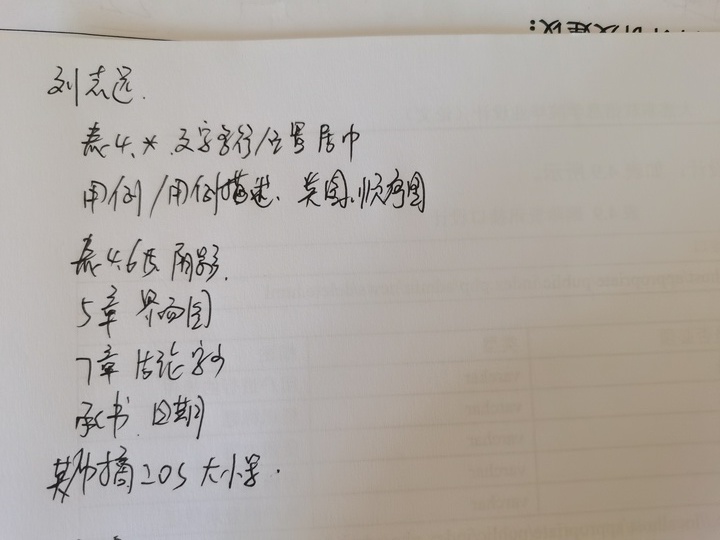 刘志远.
表4.* 文字字行/位置 居中
用例/用例描述、类图、顺序图
表4.6 阴影.
5章 界面图
7章 结论 字少
承书 日期
英 摘 大小写.